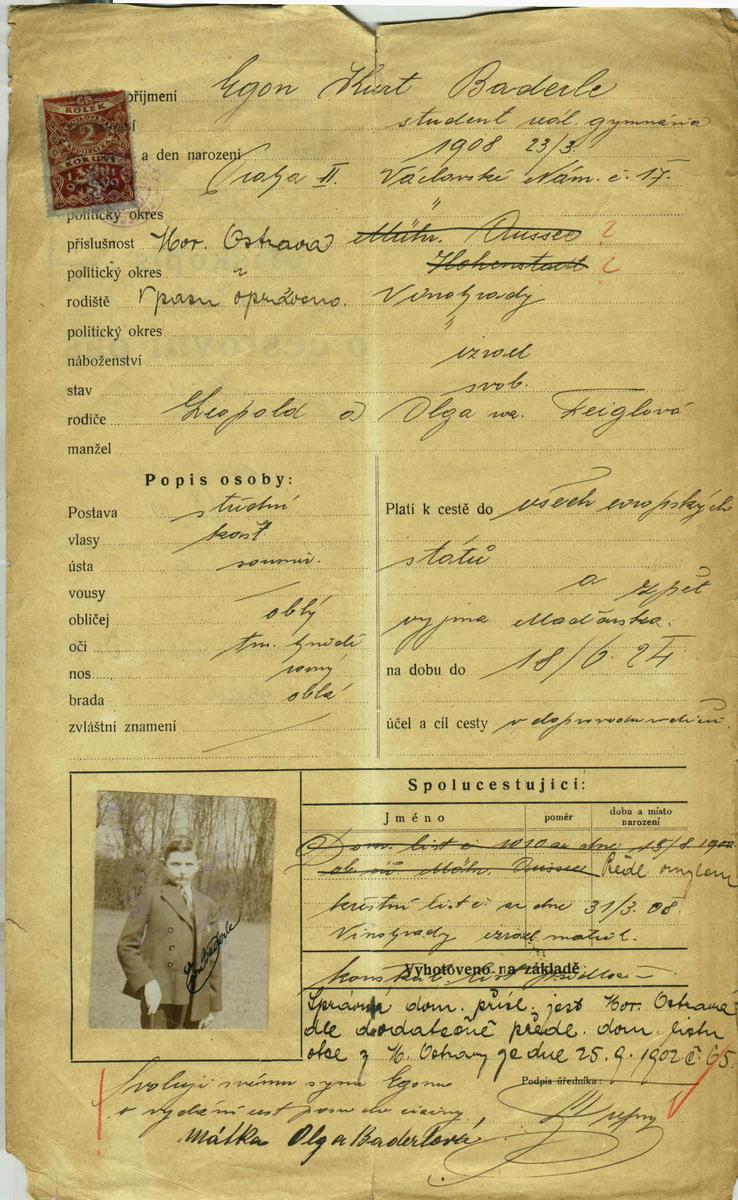 příjmení Egon Kurt Baderle
student reál. gymnásia
a den narození 1908 23/3.
Praha II. Václavské Nám. č. 17.
politický okres "
příslušnost Mor. Ostrava Mähr. Aussee ?
politický okres " Hohenstadt ?
rodiště V pasu opraveno. Vinohrady
politický okres "
náboženství izrael
stav svob.
rodiče Leopold a Olga roz. Feiglová
manžel
Popis osoby:
Postava střední
vlasy kašt
ústa souměr.
vousy —
obličej oblý
oči tm. hnědé
nos rovný
brada oblá
zvláštní znamení —
Platí k cestě do všech evropských
států
a zpět
vyjma Maďarska.
na dobu do 18/6. 24
účel a cíl cesty v doprovodu rodičů
KOLEK
2
KORUNY
Egon Baderle
Spolucestující:
Jméno poměr doba a místo narození
Dom. list č. 1010 ze dne 18/8 1902
Mähr. Aussee Předl. omylem
křestní list č. ze dne 31/3. 08.
Vinohrady izrael. matrik.
Vyhotoveno na základě
Správná dom. přísl. jest Mor. Ostrava
dle dodatečně předl. dom. listu
obce z M. Ostravy ze dne 25.9.1902 č. 65.
Podpis úředníka:
Svoluji svému synu Egonu
o vydání cest. pasu do ciziny,
Mátka Olga Baderlová